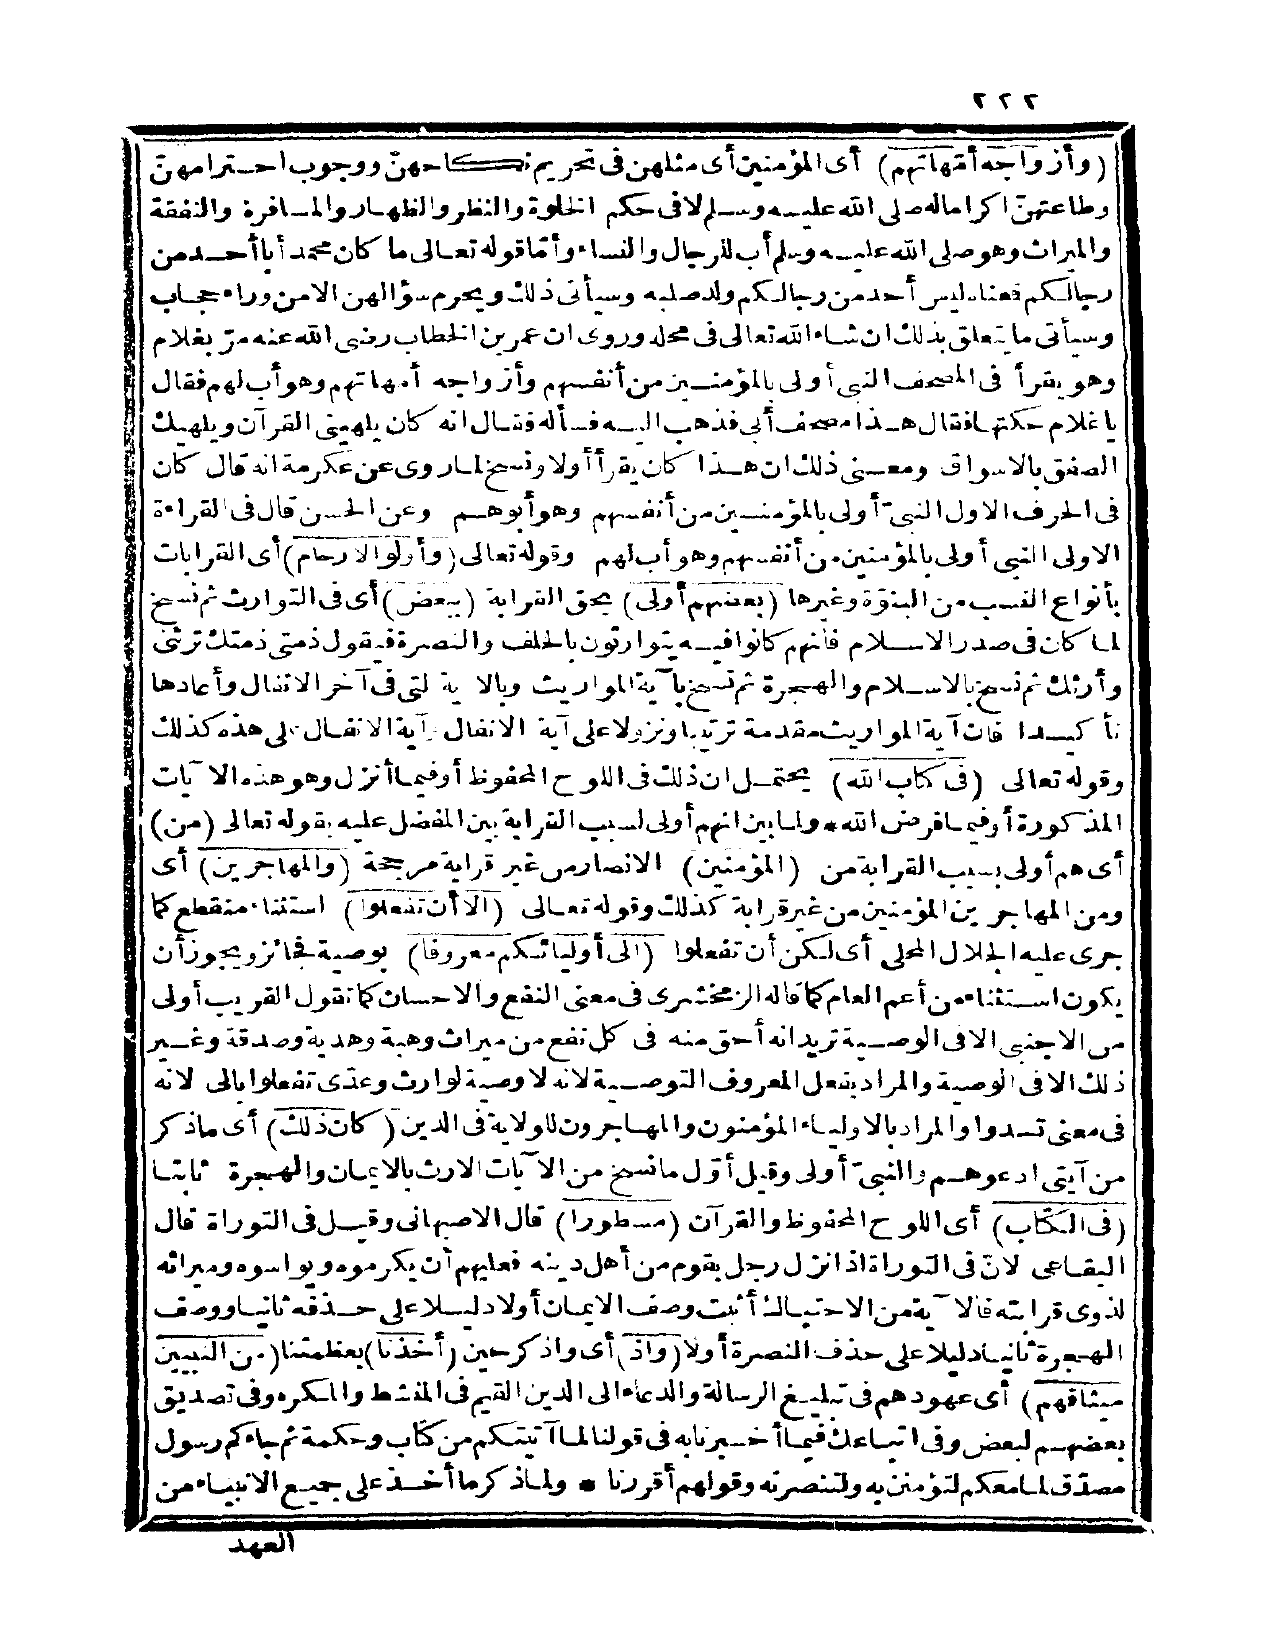 ٢٢٢
(وأزواجه أمّهاتهم) أى المؤمنين أى مثلهن فى تحريم نكاحهنّ ووجوب احترامهنّ
وطاعتهنّ اكراما له صلى الله عليه وسلم لا فى حكم الخلوة والنظر والظهار والمسافرة والنفقة
والميراث وهو صلى الله عليه وسلم أب للرجال والنساء وأمّا قوله تعالى ما كان محمد أبا أحد من
رجالكم فمعناه ليس أحد من رجالكم ولد صلبه وسيأتى ذلك ويحرم سؤالهن الا من وراء حجاب
وسيأتى ما يتعلق بذلك ان شاء الله تعالى فى محله وروى ان عمر بن الخطاب رضى الله عنه مرّ بغلام
وهو يقرأ فى المصحف النبى أولى بالمؤمنين من أنفسهم وأزواجه أمهاتهم وهو أب لهم فقال
يا غلام حكتها فقال هذا مصحف أبى فذهب اليه فسأله فقال انه كان يلهينى القرآن ويلهيك
الصفق بالاسواق ومعنى ذلك ان هذا كان يقرأ أولا ونسخ لما روى عن عكرمة انه قال كان
فى الحرف الاول النبىّ أولى بالمؤمنين من أنفسهم وهو أبوهم وعن الحسن قال فى القراءة
الاولى النبى أولى بالمؤمنين من أنفسهم وهو أب لهم وقوله تعالى (وأولوا الارحام) أى القرابات
بأنواع النسب من البنوّة وغيرها (بعضهم أولى) بحق القرابة (ببعض) أى فى التوارث ثم نسخ
لما كان فى صدر الاسلام فانهم كانوا فيه يتوارثون بالحلف والنصرة فيقول ذمتى ذمتك ترثنى
وأرثك ثم نسخ بالاسلام والهجرة ثم نسخ بآية المواريث وبالآية التى فى آخر الانفال وأعادها
تأكيدا فان آية المواريث مقدمة ترتيبا ونزولا على آية الانفال وآية الانفال على هذه كذلك
وقوله تعالى (فى كتاب الله) يحتمل ان ذلك فى اللوح المحفوظ أو فيما أنزل وهو هذه الآيات
المذكورة أو فيما فرض الله * ولما بين انهم أولى لسبب القرابة بين المفضل عليه بقوله تعالى (من)
أى هم أولى بسبب القرابة من (المؤمنين) الانصار من غير قرابة مرجحة (والمهاجرين) أى
ومن المهاجرين المؤمنين من غير قرابة كذلك وقوله تعالى (الا أن تفعلوا) استثناء منقطع كما
جرى عليه الجلال المحلى أى لكن أن تفعلوا (الى أوليائكم معروفا) بوصية فجائز ويجوز أن
يكون استثناء من أعم العام كما قاله الزمخشرى فى معنى النفع والاحسان كما تقول القريب أولى
من الاجنبى الا فى الوصية تريد انه أحق منه فى كل نفع من ميراث وهبة وهدية وصدقة وغير
ذلك الا فى الوصية والمراد بفعل المعروف التوصية لانه لا وصية لوارث وعدّى تفعلوا بالى لانه
فى معنى تسدوا والمراد بالاولياء المؤمنون والمهاجرون للولاية فى الدين (كان ذلك) أى ما ذكر
من آيتى ادعوهم والنبىّ أولى وقيل أوّل ما نسخ من الآيات الارث بالايمان والهجرة ثابتا
(فى الكتاب) أى اللوح المحفوظ والقرآن (مسطورا) قال الاصبهانى وقيل فى التوراة قال
البقاعى لانّ فى التوراة اذا نزل رجل بقوم من أهل دينه فعليهم أن يكرموه ويواسوه وميراثه
لذوى قرابته فالآية من الاحتباك أثبت وصف الايمان أولا دليلا على حذفه ثانيا ووصف
الهجرة ثانيا دليلا على حذف النصرة أولا (واذ) أى واذكر حين (أخذنا) بعظمتنا (من النبيين
ميثاقهم) أى عهودهم فى تبليغ الرسالة والدعاء الى الدين القيم فى المنشط والمكره وفى تصديق
بعضهم لبعض وفى اتباعك فيما أخبرنا به فى قولنا لما آتيتكم من كتاب وحكمة ثم جاءكم رسول
مصدّق لما معكم لتؤمنن به ولتنصرنه وقولهم أقررنا * ولما ذكر ما أخذ على جميع الانبياء من
العهد